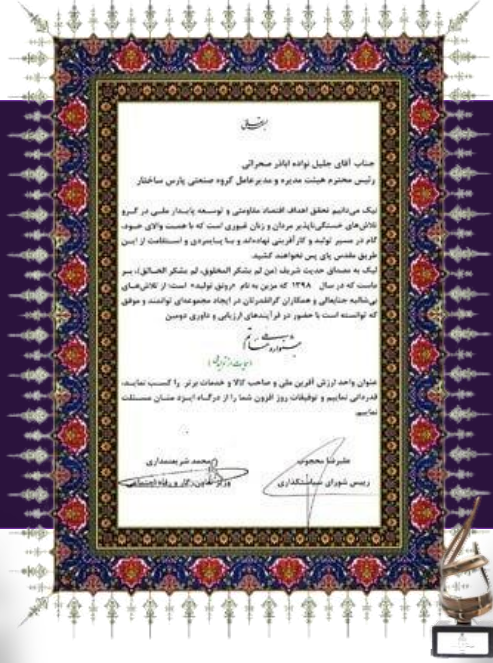 بسمه تعالی
جناب آقای جلیل نواده اباذر صحرائی
رئیس محترم هیئت مدیره و مدیرعامل گروه صنعتی پارس ساختار
نیک می‌دانیم تحقق اهداف اقتصاد مقاومتی و توسعه پایدار ملی در گرو
تلاش‌های خستگی‌ناپذیر مردان و زنان غیوری است که با همت والای خود،
گام در مسیر تولید و کارآفرینی نهاده‌اند و با پایمردی و استقامت از این
طریق مقدس پای پس نخواهند کشید.
لیک به مصداق حدیث شریف (من لم یشکر المخلوق، لم یشکر الخالق)، بر
ماست که در سال ۱۳۹۸ که مزین به نام «رونق تولید» است؛ از تلاش‌های
بی‌شائبه جنابعالی و همکاران گرانقدرتان در ایجاد مجموعه‌ای توانمند و موفق
که توانسته است با حضور در فرآیندهای ارزیابی و داوری دومین
جشنواره ملی حاتم
عنوان واحد ارزش آفرین ملی و صاحب کالا و خدمات برتر را کسب نماید،
قدردانی نماییم و توفیقات روز افزون شما را از درگاه ایزد منان مسئلت
نماییم.
علیرضا محجوب
رییس شورای سیاستگذاری
محمد شریعتمداری
وزیر تعاون، کار و رفاه اجتماعی